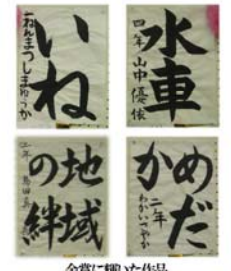 いね
一ねんまつしまゆうか
水車
四年 山中優依
地域
の絆
年
めだ
か
二年
わかいさやか
金賞に輝いた作品